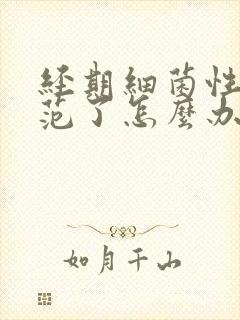 經期細菌性
范了怎麼办
如月千山